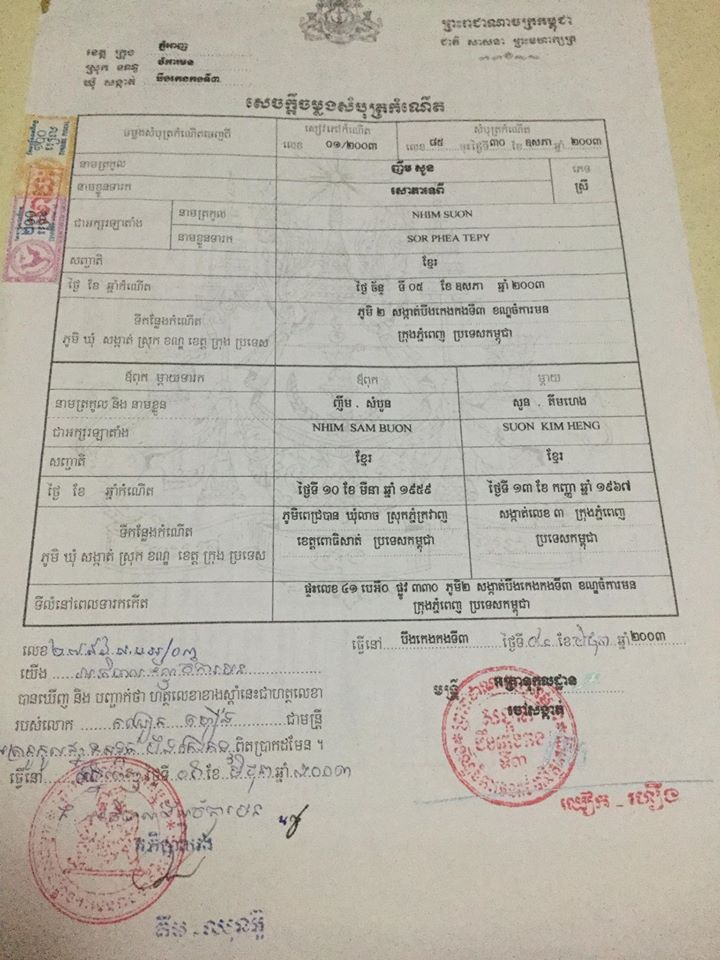 ព្រះរាជាណាចក្រកម្ពុជា
ជាតិ សាសនា ព្រះមហាក្សត្រ
ខេត្ត ក្រុង ភ្នំពេញ
ស្រុក ខណ្ឌ ចំការមន
ឃុំ សង្កាត់ បឹងកេងកងទី៣
សេចក្តីចម្លងសំបុត្រកំណើត
សៀវភៅកំណើត សំបុត្រកំណើត
លេខ ០១/២០០៣ លេខ ៨៥ ចុះថ្ងៃទី៣០ ខែ ឧសភា ឆ្នាំ ២០០៣
នាមត្រកូល ញឹម សួន ភេទ
នាមខ្លួនទារក សោភាទេពី ស្រី
ជាអក្សរឡាតាំង នាមត្រកូល NHIM SUON
នាមខ្លួនទារក SOR PHEA TEPY
សញ្ជាតិ ខ្មែរ
ថ្ងៃ ខែ ឆ្នាំកំណើត ថ្ងៃ ច័ន្ទ ទី ០៥ ខែ ឧសភា ឆ្នាំ ២០០៣
ទីកន្លែងកំណើត ភូមិ ២ សង្កាត់បឹងកេងកងទី៣ ខណ្ឌចំការមន
ភូមិ ឃុំ សង្កាត់ ស្រុក ខណ្ឌ ខេត្ត ក្រុង ប្រទេស ក្រុងភ្នំពេញ ប្រទេសកម្ពុជា
ឪពុក ម្តាយទារក ឪពុក ម្តាយ
នាមត្រកូល និង នាមខ្លួន ញឹម . សំបូន សួន . គីមហេង
ជាអក្សរឡាតាំង NHIM SAM BUON SUON KIM HENG
សញ្ជាតិ ខ្មែរ ខ្មែរ
ថ្ងៃ ខែ ឆ្នាំកំណើត ថ្ងៃទី ១០ ខែ មីនា ឆ្នាំ ១៩៥៩ ថ្ងៃទី ១៣ ខែ កញ្ញា ឆ្នាំ ១៩៦៧
ទីកន្លែងកំណើត ភូមិពេជ្របាន ឃុំលាច ស្រុកភ្នំក្រវាញ សង្កាត់លេខ ៣ ក្រុងភ្នំពេញ
ភូមិ ឃុំ សង្កាត់ ស្រុក ខណ្ឌ ខេត្ត ក្រុង ប្រទេស ខេត្តពោធិសាត់ ប្រទេសកម្ពុជា ប្រទេសកម្ពុជា
ទីលំនៅពេលទារកកើត ផ្ទះលេខ ៤១ បេអឺ០ ផ្លូវ ៣៣០ ភូមិ២ សង្កាត់បឹងកេងកងទី៣ ខណ្ឌចំការមន
ក្រុងភ្នំពេញ ប្រទេសកម្ពុជា
លេខ
ធ្វើនៅ បឹងកេងកងទី៣ ថ្ងៃទី ខែ មិថុនា ឆ្នាំ ២០០៣
យើង
មន្ត្រី អត្រានុកូលដ្ឋាន
ចៅសង្កាត់
បានឃើញ និង បញ្ជាក់ថា ហត្ថលេខាខាងស្តាំនេះជាហត្ថលេខា
របស់លោក ជាមន្ត្រី
ពិតប្រាកដមែន ។
ធ្វើនៅ ថ្ងៃទី ខែ មិថុនា ឆ្នាំ ២០០៣